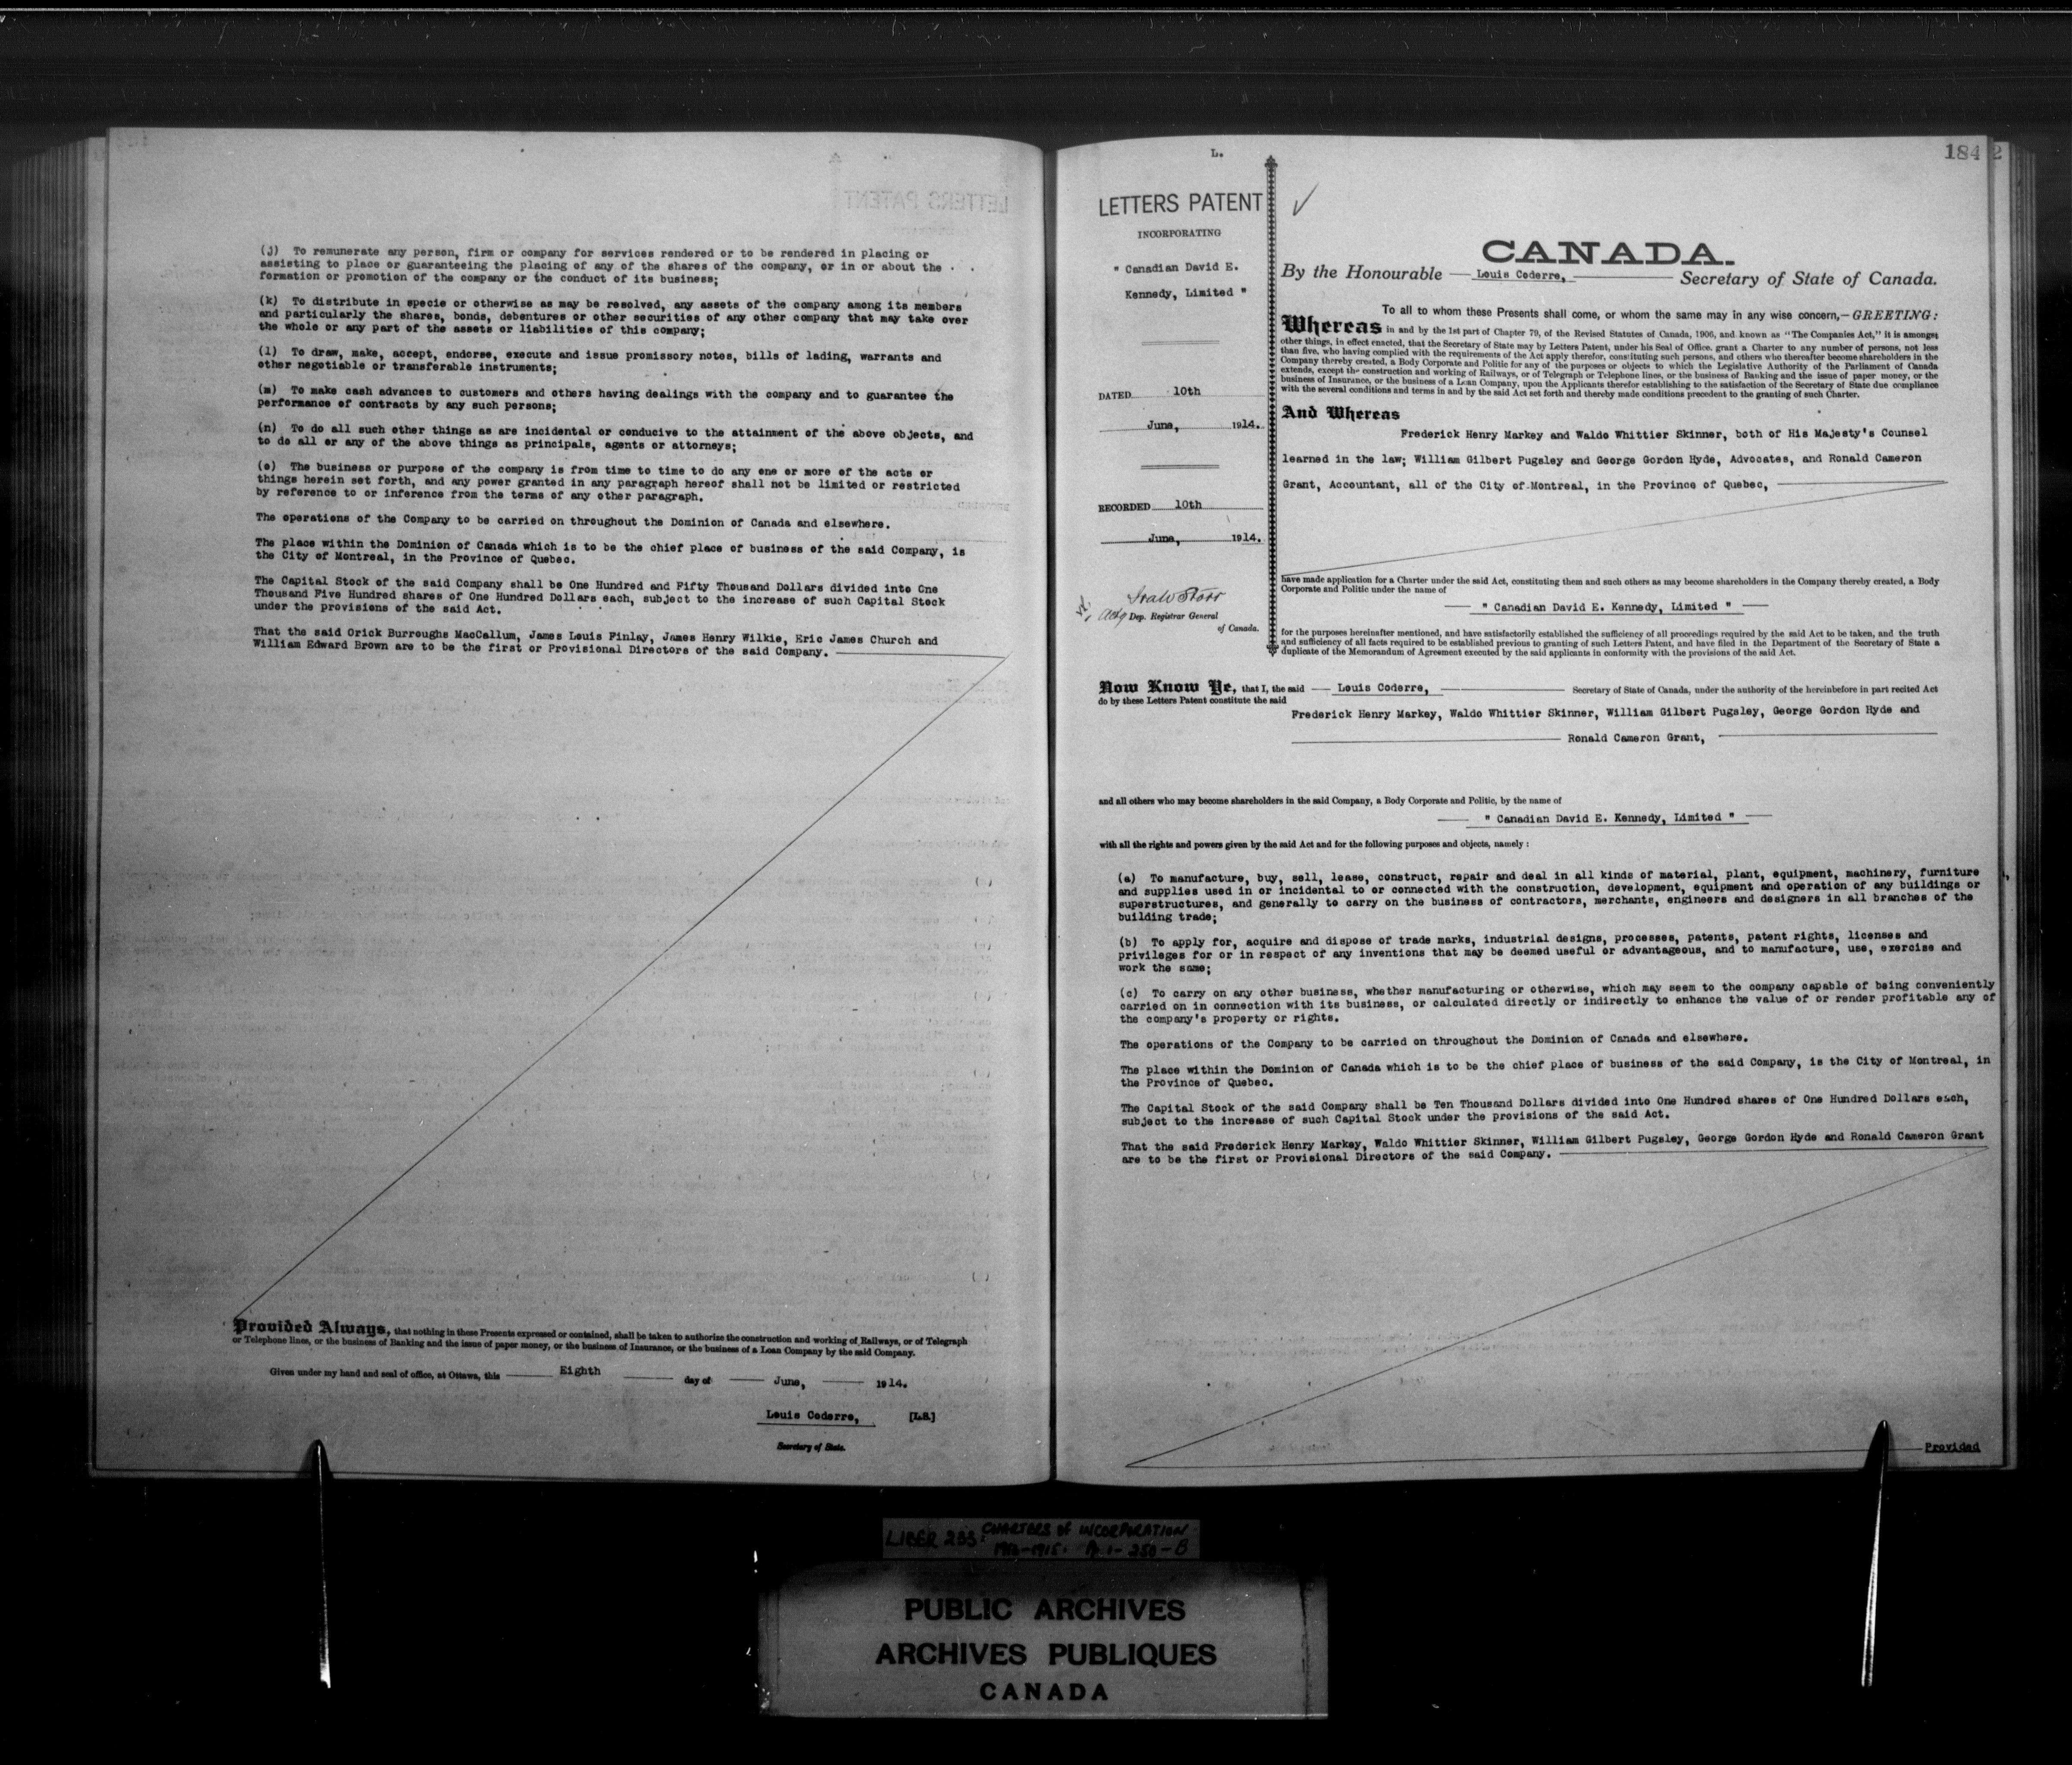 (j) To remunerate any person, firm or company for services rendered or to be rendered in placing or
assisting to place or guaranteeing the placing of any of the shares of the company, or in or about the
formation or promotion of the company or the conduct of its business;
(k) To distribute in specie or otherwise as may be resolved, any assets of the company among its members
and particularly the shares, bonds, debentures or other securities of any other company that may take over
the whole or any part of the assets or liabilities of this company;
(l) To draw, make, accept, endorse, execute and issue promissory notes, bills of lading, warrants and
other negotiable or transferable instruments;
(m) To make cash advances to customers and others having dealings with the company and to guarantee the
performance of contracts by any such persons;
(n) To do all such other things as are incidental or conducive to the attainment of the above objects, and
to do all or any of the above things as principals, agents or attorneys;
(o) The business or purpose of the company is from time to time to do any one or more of the acts or
things herein set forth, and any power granted in any paragraph hereof shall not be limited or restricted
by reference to or inference from the terms of any other paragraph.
The operations of the Company to be carried on throughout the Dominion of Canada and elsewhere.
The place within the Dominion of Canada which is to be the chief place of business of the said Company, is
the City of Montreal, in the Province of Quebec.
The Capital Stock of the said Company shall be One Hundred and Fifty Thousand Dollars divided into One
Thousand Five Hundred shares of One Hundred Dollars each, subject to the increase of such Capital Stock
under the provisions of the said Act.
That the said Orick Burroughs MacCallum, James Louis Finlay, James Henry Wilkie, Eric James Church and
William Edward Brown are to be the first or Provisional Directors of the said Company.
Provided Always, that nothing in these Presents expressed or contained, shall be taken to authorize the construction and working of Railways, or of Telegraph
or Telephone lines, or the business of Banking and the issue of paper money, or the business of Insurance, or the business of a Loan Company by the said Company.
Given under my hand and seal of office, at Ottawa, this Eighth day of June, 1914.
Louis Coderre, [L.S.]
Secretary of State.
184 2
L.
LETTERS PATENT
INCORPORATING
" Canadian David E.
Kennedy, Limited "
DATED 10th
June, 1914.
RECORDED 10th
June, 1914.
Actg Dep. Registrar General
of Canada.
CANADA.
By the Honourable Louis Coderre, Secretary of State of Canada.
To all to whom these Presents shall come, or whom the same may in any wise concern,—GREETING:
Whereas in and by the 1st part of Chapter 79, of the Revised Statutes of Canada, 1906, and known as "The Companies Act," it is amongst
other things, in effect enacted, that the Secretary of State may by Letters Patent, under his Seal of Office, grant a Charter to any number of persons, not less
than five, who having complied with the requirements of the Act apply therefor, constituting such persons, and others who thereafter become shareholders in the
Company thereby created, a Body Corporate and Politic for any of the purposes or objects to which the Legislative Authority of the Parliament of Canada
extends, except the construction and working of Railways, or of Telegraph or Telephone lines, or the business of Banking and the issue of paper money, or the
business of Insurance, or the business of a Loan Company, upon the Applicants therefor establishing to the satisfaction of the Secretary of State due compliance
with the several conditions and terms in and by the said Act set forth and thereby made conditions precedent to the granting of such Charter.
And Whereas
Frederick Henry Markey and Waldo Whittier Skinner, both of His Majesty's Counsel
learned in the law; William Gilbert Pugsley and George Gordon Hyde, Advocates, and Ronald Cameron
Grant, Accountant, all of the City of Montreal, in the Province of Quebec,
have made application for a Charter under the said Act, constituting them and such others as may become shareholders in the Company thereby created, a Body
Corporate and Politic under the name of
" Canadian David E. Kennedy, Limited "
for the purposes hereinafter mentioned, and have satisfactorily established the sufficiency of all proceedings required by the said Act to be taken, and the truth
and sufficiency of all facts required to be established previous to granting of such Letters Patent, and have filed in the Department of the Secretary of State a
duplicate of the Memorandum of Agreement executed by the said applicants in conformity with the provisions of the said Act.
Now Know Ye, that I, the said Louis Coderre, Secretary of State of Canada, under the authority of the hereinbefore in part recited Act
do by these Letters Patent constitute the said
Frederick Henry Markey, Waldo Whittier Skinner, William Gilbert Pugsley, George Gordon Hyde and
Ronald Cameron Grant,
and all others who may become shareholders in the said Company, a Body Corporate and Politic, by the name of
" Canadian David E. Kennedy, Limited "
with all the rights and powers given by the said Act and for the following purposes and objects, namely :
(a) To manufacture, buy, sell, lease, construct, repair and deal in all kinds of material, plant, equipment, machinery, furniture
and supplies used in or incidental to or connected with the construction, development, equipment and operation of any buildings or
superstructures, and generally to carry on the business of contractors, merchants, engineers and designers in all branches of the
building trade;
(b) To apply for, acquire and dispose of trade marks, industrial designs, processes, patents, patent rights, licenses and
privileges for or in respect of any inventions that may be deemed useful or advantageous, and to manufacture, use, exercise and
work the same;
(c) To carry on any other business, whether manufacturing or otherwise, which may seem to the company capable of being conveniently
carried on in connection with its business, or calculated directly or indirectly to enhance the value of or render profitable any of
the company's property or rights.
The operations of the Company to be carried on throughout the Dominion of Canada and elsewhere.
The place within the Dominion of Canada which is to be the chief place of business of the said Company, is the City of Montreal, in
the Province of Quebec.
The Capital Stock of the said Company shall be Ten Thousand Dollars divided into One Hundred shares of One Hundred Dollars each,
subject to the increase of such Capital Stock under the provisions of the said Act.
That the said Frederick Henry Markey, Waldo Whittier Skinner, William Gilbert Pugsley, George Gordon Hyde and Ronald Cameron Grant
are to be the first or Provisional Directors of the said Company.
Provided
LIBER 233: CHARTERS of INCORPORATION
-1915. 1-250-B
PUBLIC ARCHIVES
ARCHIVES PUBLIQUES
CANADA